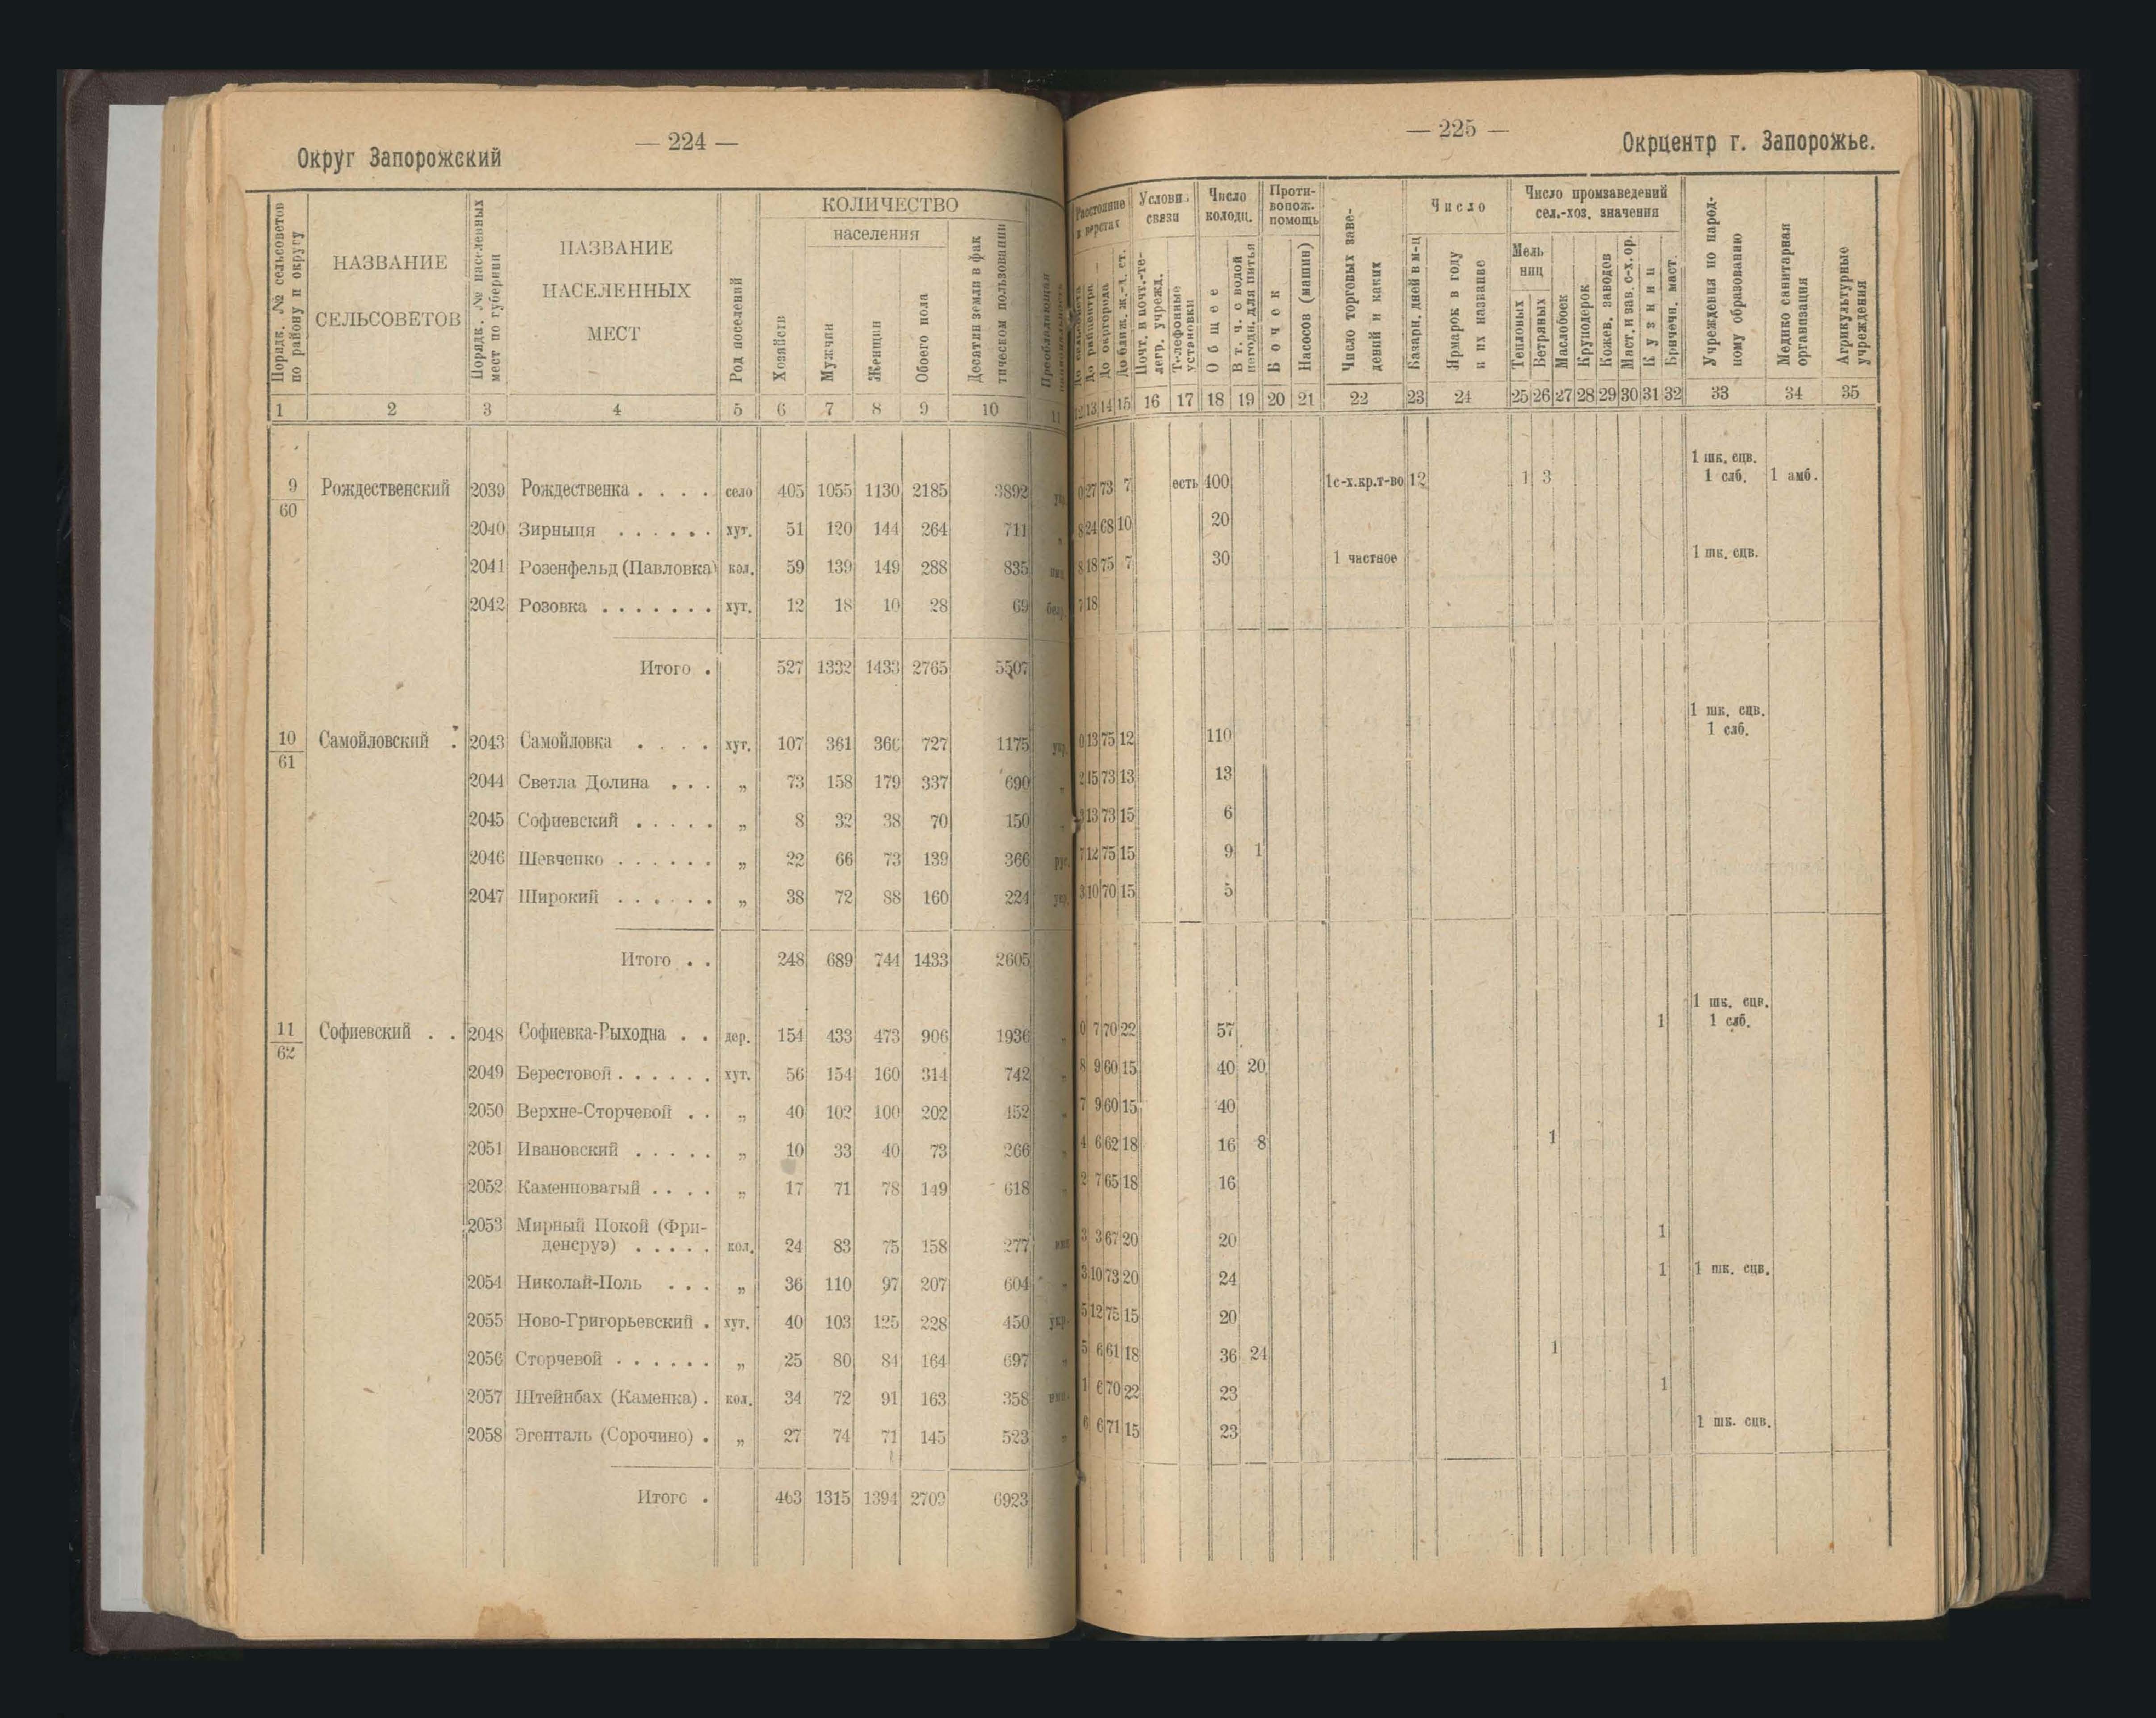 Округ Запорожский
— 224 —
КОЛИЧЕСТВО
населения
Порядк. № сельсоветов по району и округу
НАЗВАНИЕ СЕЛЬСОВЕТОВ
Порядк. № населенных мест по губернии
НАЗВАНИЕ НАСЕЛЕННЫХ МЕСТ
Род поселений
Хозяйств
Мужчин
Женщин
Обоего пола
Десятин земли в фактическом пользовании
Преобладающая
1 2 3 4 5 6 7 8 9 10 11
9/60 Рождественский 2039 Рождественка . . . . село 405 1055 1130 2185 3892 укр.
2040 Зирныця . . . . . . хут. 51 120 144 264 711 „
2041 Розенфельд (Павловка) кол. 59 139 149 288 835
2042 Розовка . . . . . . . хут. 12 18 10 28 69
Итого . 527 1332 1433 2765 5507
10/61 Самойловский . 2043 Самойловка . . . . хут. 107 361 366 727 1175 укр.
2044 Светла Долина . . . „ 73 158 179 337 690 „
2045 Софиевский . . . . . „ 8 32 38 70 150
2046 Шевченко . . . . . . „ 22 66 73 139 366 рус.
2047 Широкий . . . . . . „ 38 72 88 160 224 укр.
Итого . . 248 689 744 1433 2605
11/62 Софиевский . . 2048 Софиевка-Рыходна . . дер. 154 433 473 906 1936 „
2049 Берестовой . . . . . . хут. 56 154 160 314 742 „
2050 Верхне-Сторчевой . . „ 40 102 100 202 452 „
2051 Ивановский . . . . . „ 10 33 40 73 266 „
2052 Каменноватый . . . . „ 17 71 78 149 618 „
2053 Мирный Покой (Фри-
денсруэ) . . . . . кол. 24 83 75 158 277
2054 Николай-Поль . . . „ 36 110 97 207 604 „
2055 Ново-Григорьевский . хут. 40 103 125 228 450 укр.
2056 Сторчевой . . . . . . „ 25 80 84 164 697 „
2057 Штейнбах (Каменка) . кол. 34 72 91 163 358
2058 Эгенталь (Сорочино) . „ 27 74 71 145 523 „
Итого . 463 1315 1394 2709 6923
— 225 —
Окрцентр г. Запорожье.
Расстояние в верстах
До райцентра
До окргорода
До ближ. ж.-д. ст.
Услови. связи
Почт. и почт.-телегр. учрежд.
Телефонные установки
Число колодц.
Общее
В т. ч. с водой негодн. для питья
Противопож. помощь
Бочек
Насосов (машин)
Число торговых заведений и каких
Число
Базарн. дней в м-ц
Ярмарок в году и их название
Число промзаведений сел.-хоз. значения
Мельниц
Тепловых
Ветряных
Маслобоек
Круподерок
Кожев. заводов
Маст. и зав. с-х. ор.
Кузниц
Бричечн. маст.
Учреждения по народному образованию
Медико санитарная организация
Агрикультурные учреждения
12 13 14 15 16 17 18 19 20 21 22 23 24 25 26 27 28 29 30 31 32 33 34 35
1 шк. сцв.
0 27 73 7 есть 400 1 с-х.кр.т-во 12 1 3 1 слб. 1 амб.
8 24 68 10 20
8 18 75 7 30 1 частное 1 шк. сцв.
7 18
1 шк. сцв.
0 13 75 12 110 1 слб.
2 15 73 13 13
13 73 15 6
7 12 75 15 9 1
3 10 70 15 5
1 шк. сцв.
0 7 70 22 57 1 1 слб.
8 9 60 15 40 20
7 9 60 15 40
4 6 62 18 16 8 1
2 7 65 18 16
3 3 67 20 20 1
3 10 73 20 24 1 1 шк. сцв.
5 12 75 15 20
5 6 61 18 36 24 1
1 6 70 22 23 1
6 6 71 15 23 1 шк. сцв.